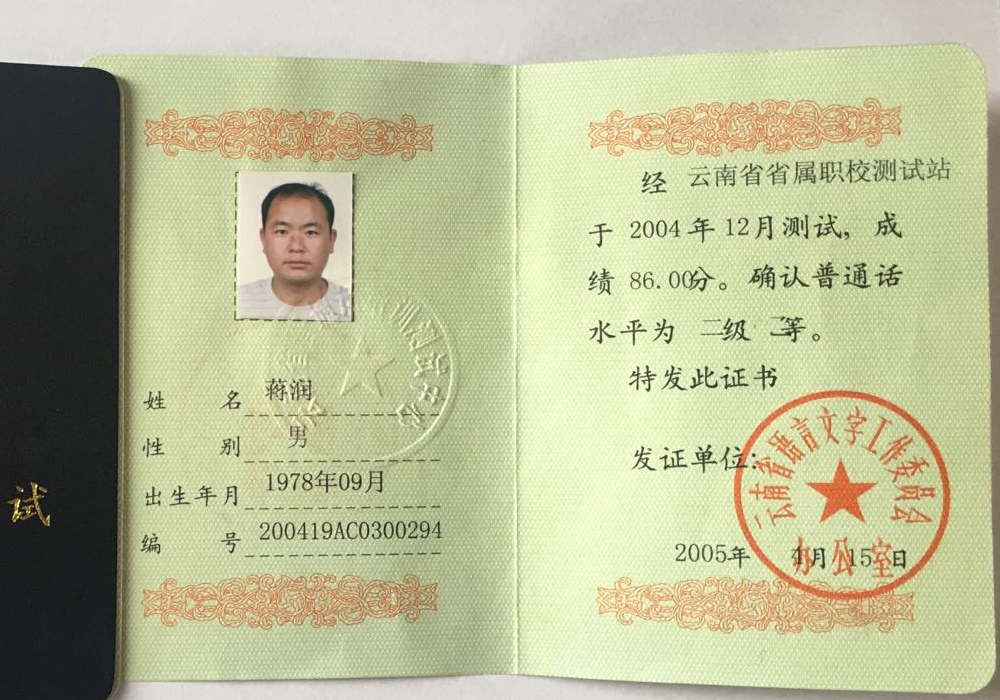 试
姓名 蒋润
性别 男
出生年月 1978年09月
编号 200419AC0300294
经 云南省省属职校测试站
于 2004 年 12月 测试，成
绩 86.00分。确认普通话
水平为 二级 等。
特发此证书
发证单位:
云南省语言文字工作委员会
办公室
2005年 4月 15日